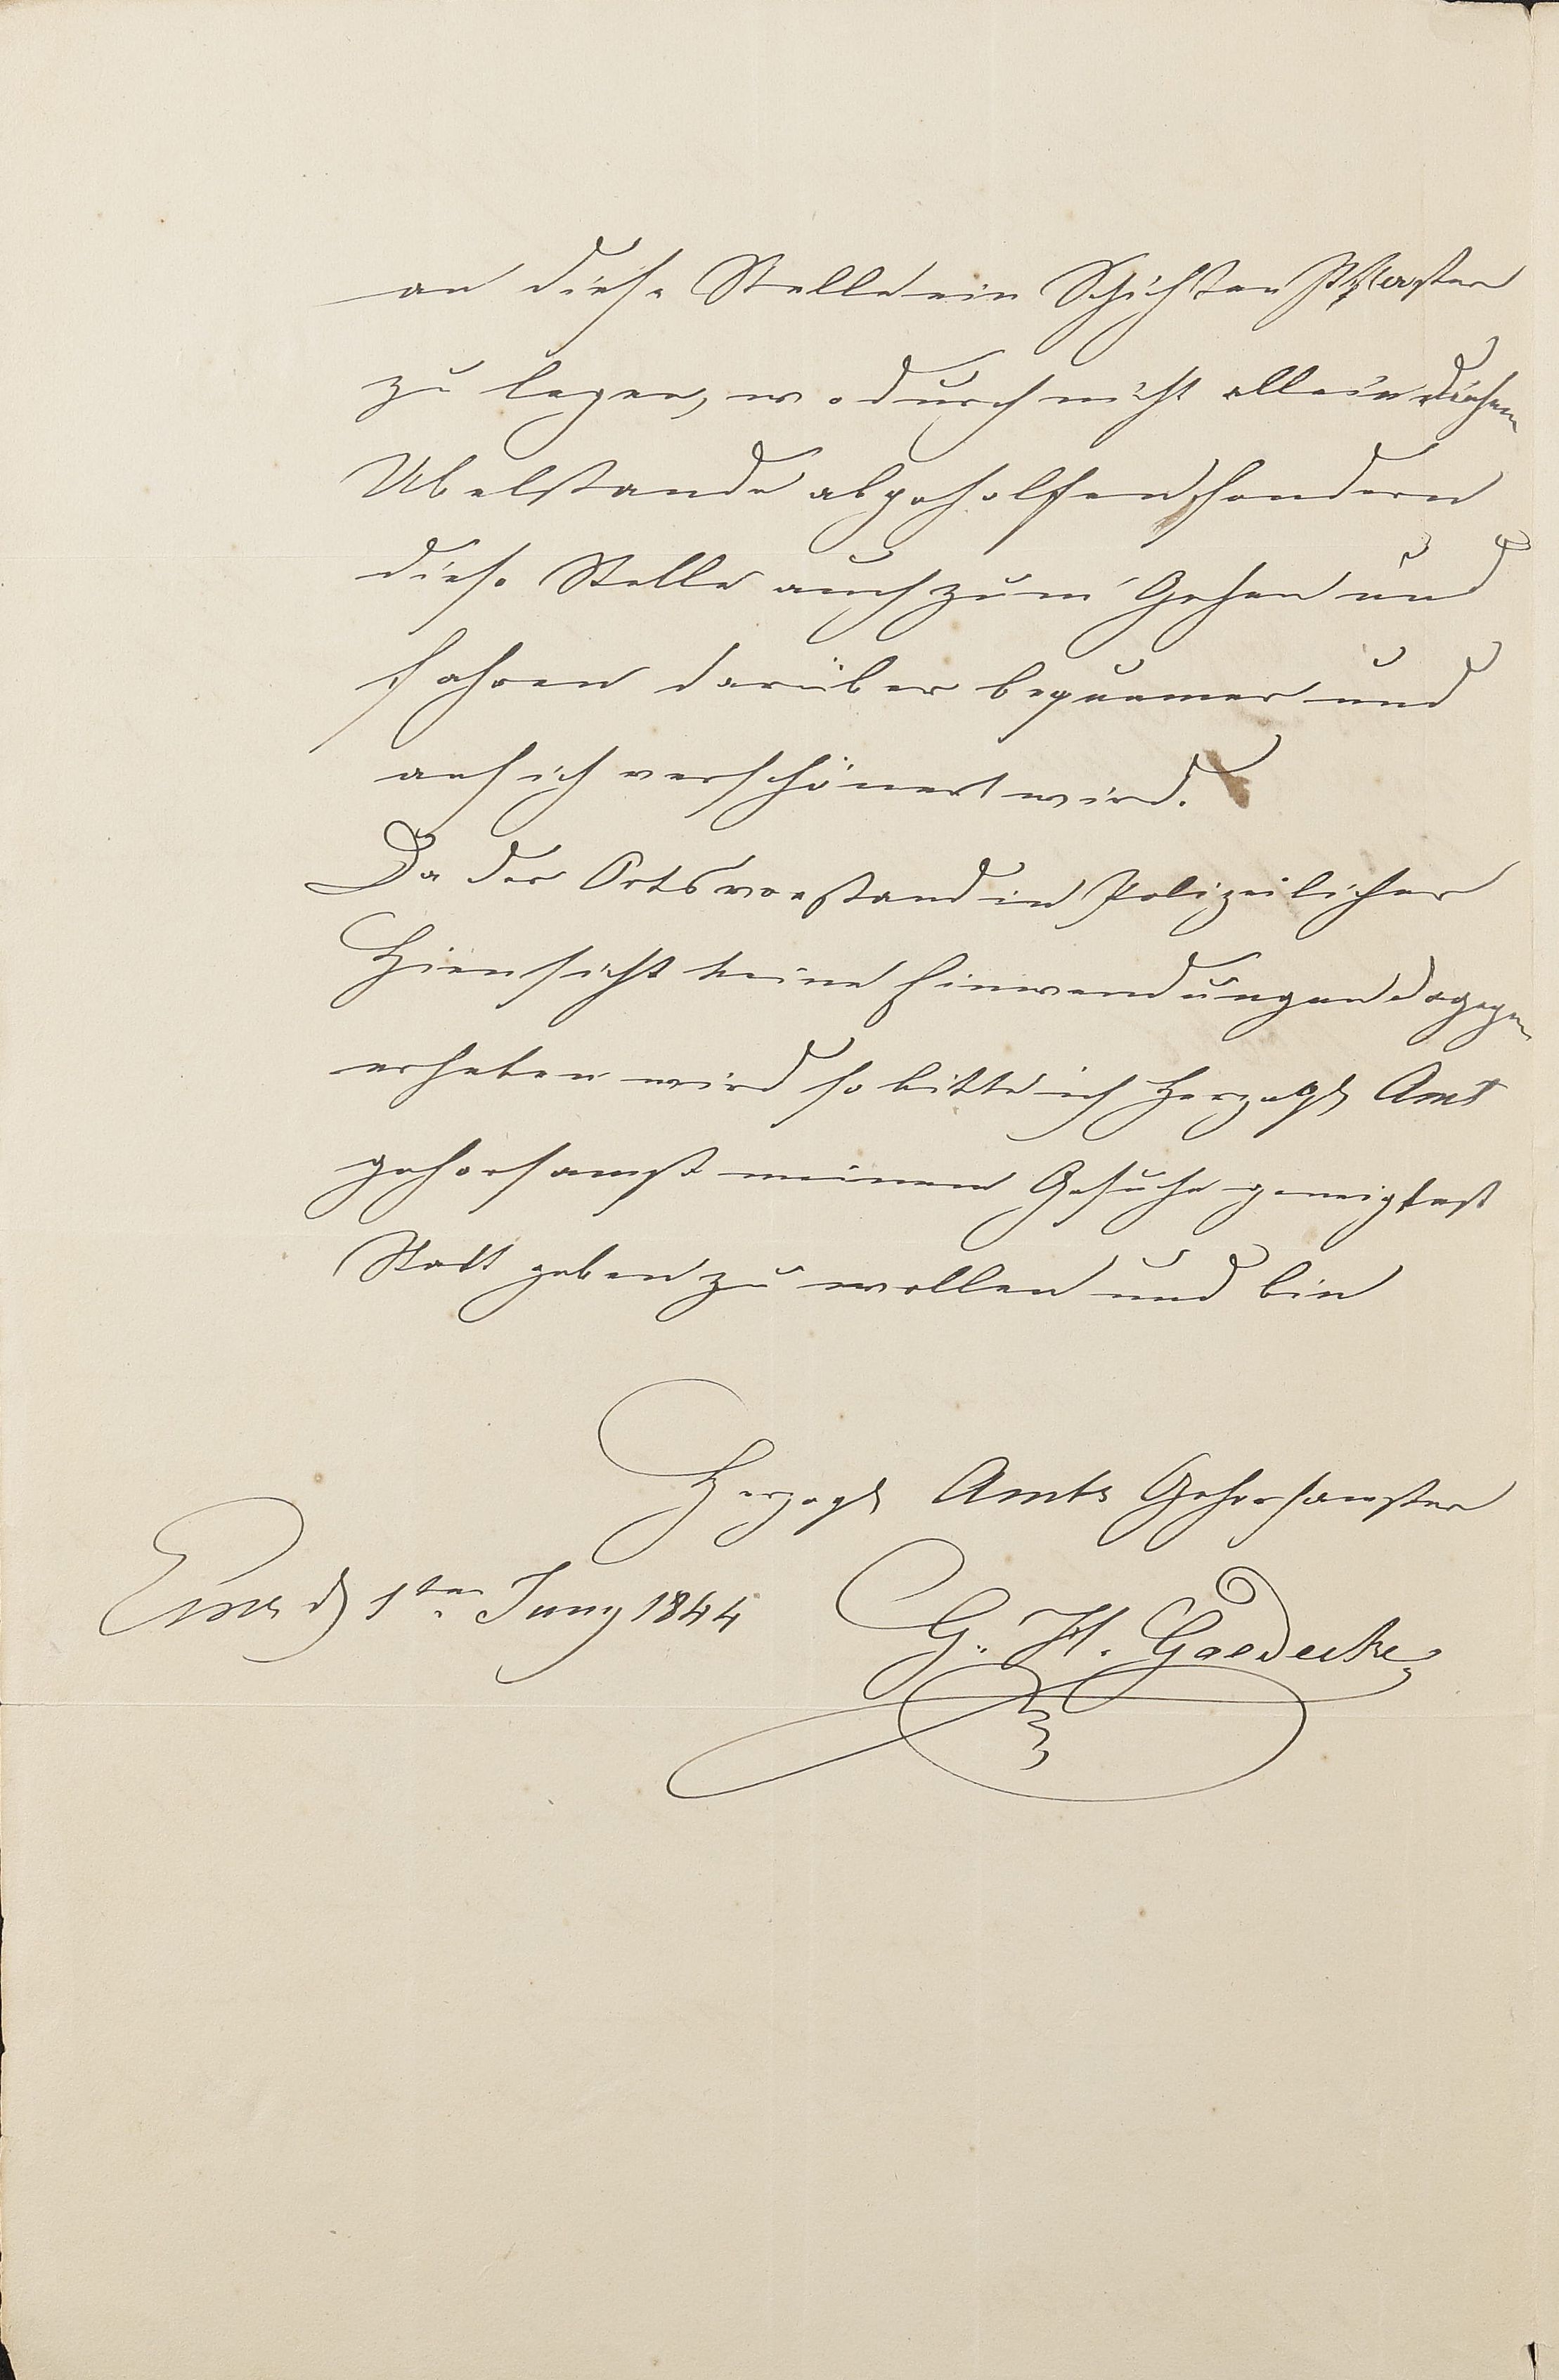 an diese Stelle ein Schichten Pflaster
zu legen, wodurch nicht allein diesem
Ubelstande abgeholfen, sondern
diese Stelle auch zum Gehen und
fahren darüber bequemer und
ansich verschönert wird.
Da der Ortsvorstand in Polizeilicher
Hinsicht keine Einwendungen dagegen
erheben wird so bitte ich Herzogl Amt
gehorsamst meinem Gesuche geneigtest
Statt geben zu wollen und bin
Herzogl Amts Gehorsamster
Ems d 1ten Juny 1844 G. H. Goedecke